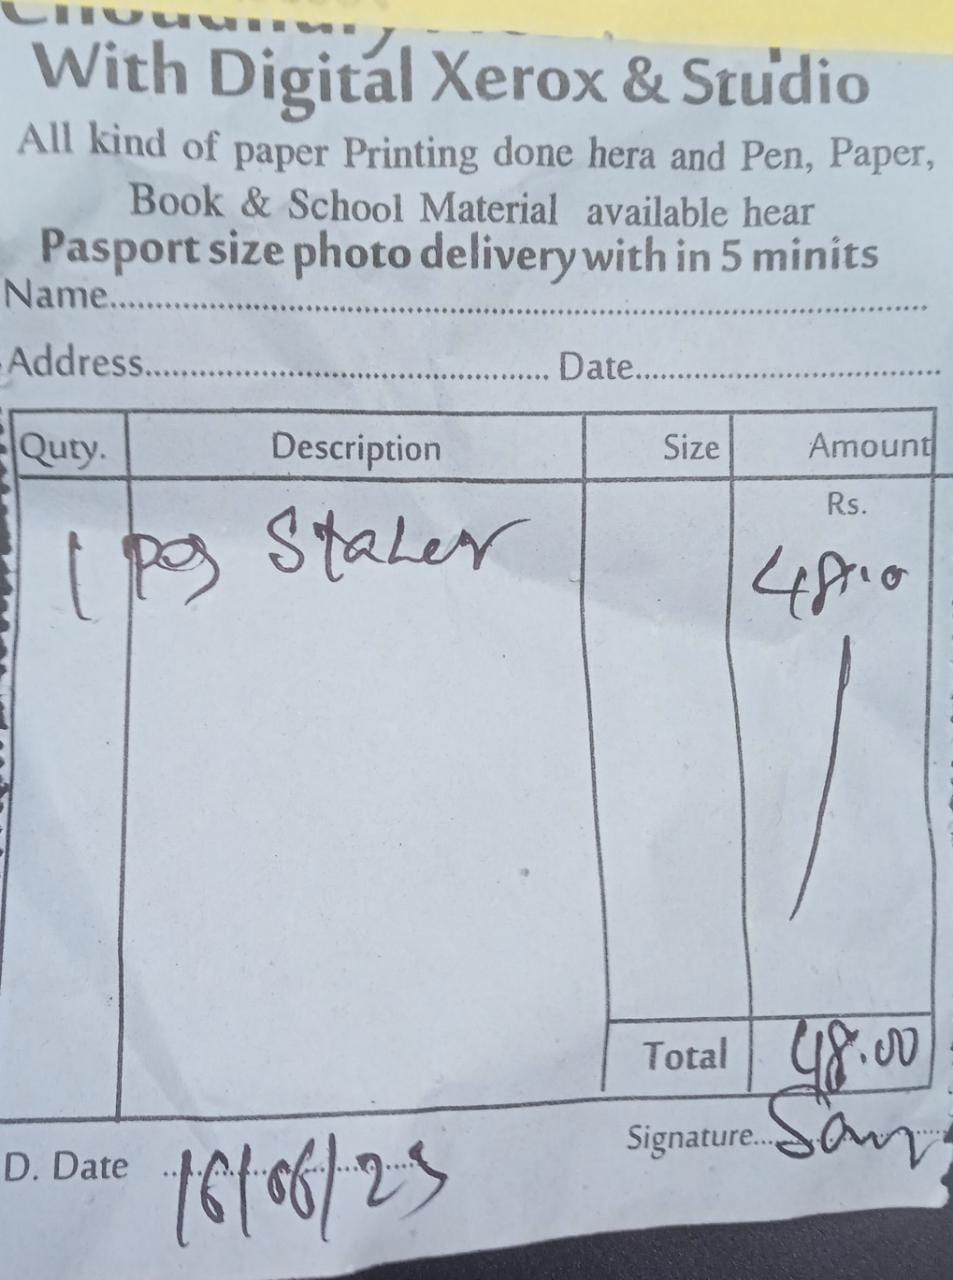 With Digital Xerox & Studio
All kind of paper Printing done hera and Pen, Paper,
Book & School Material available hear
Pasport size photo delivery with in 5 minits
Name
Address Date
Quty. Description Size Amount
Rs.
1 Pcs 48.0
Total 48.00
Signature
D. Date 16/06/23